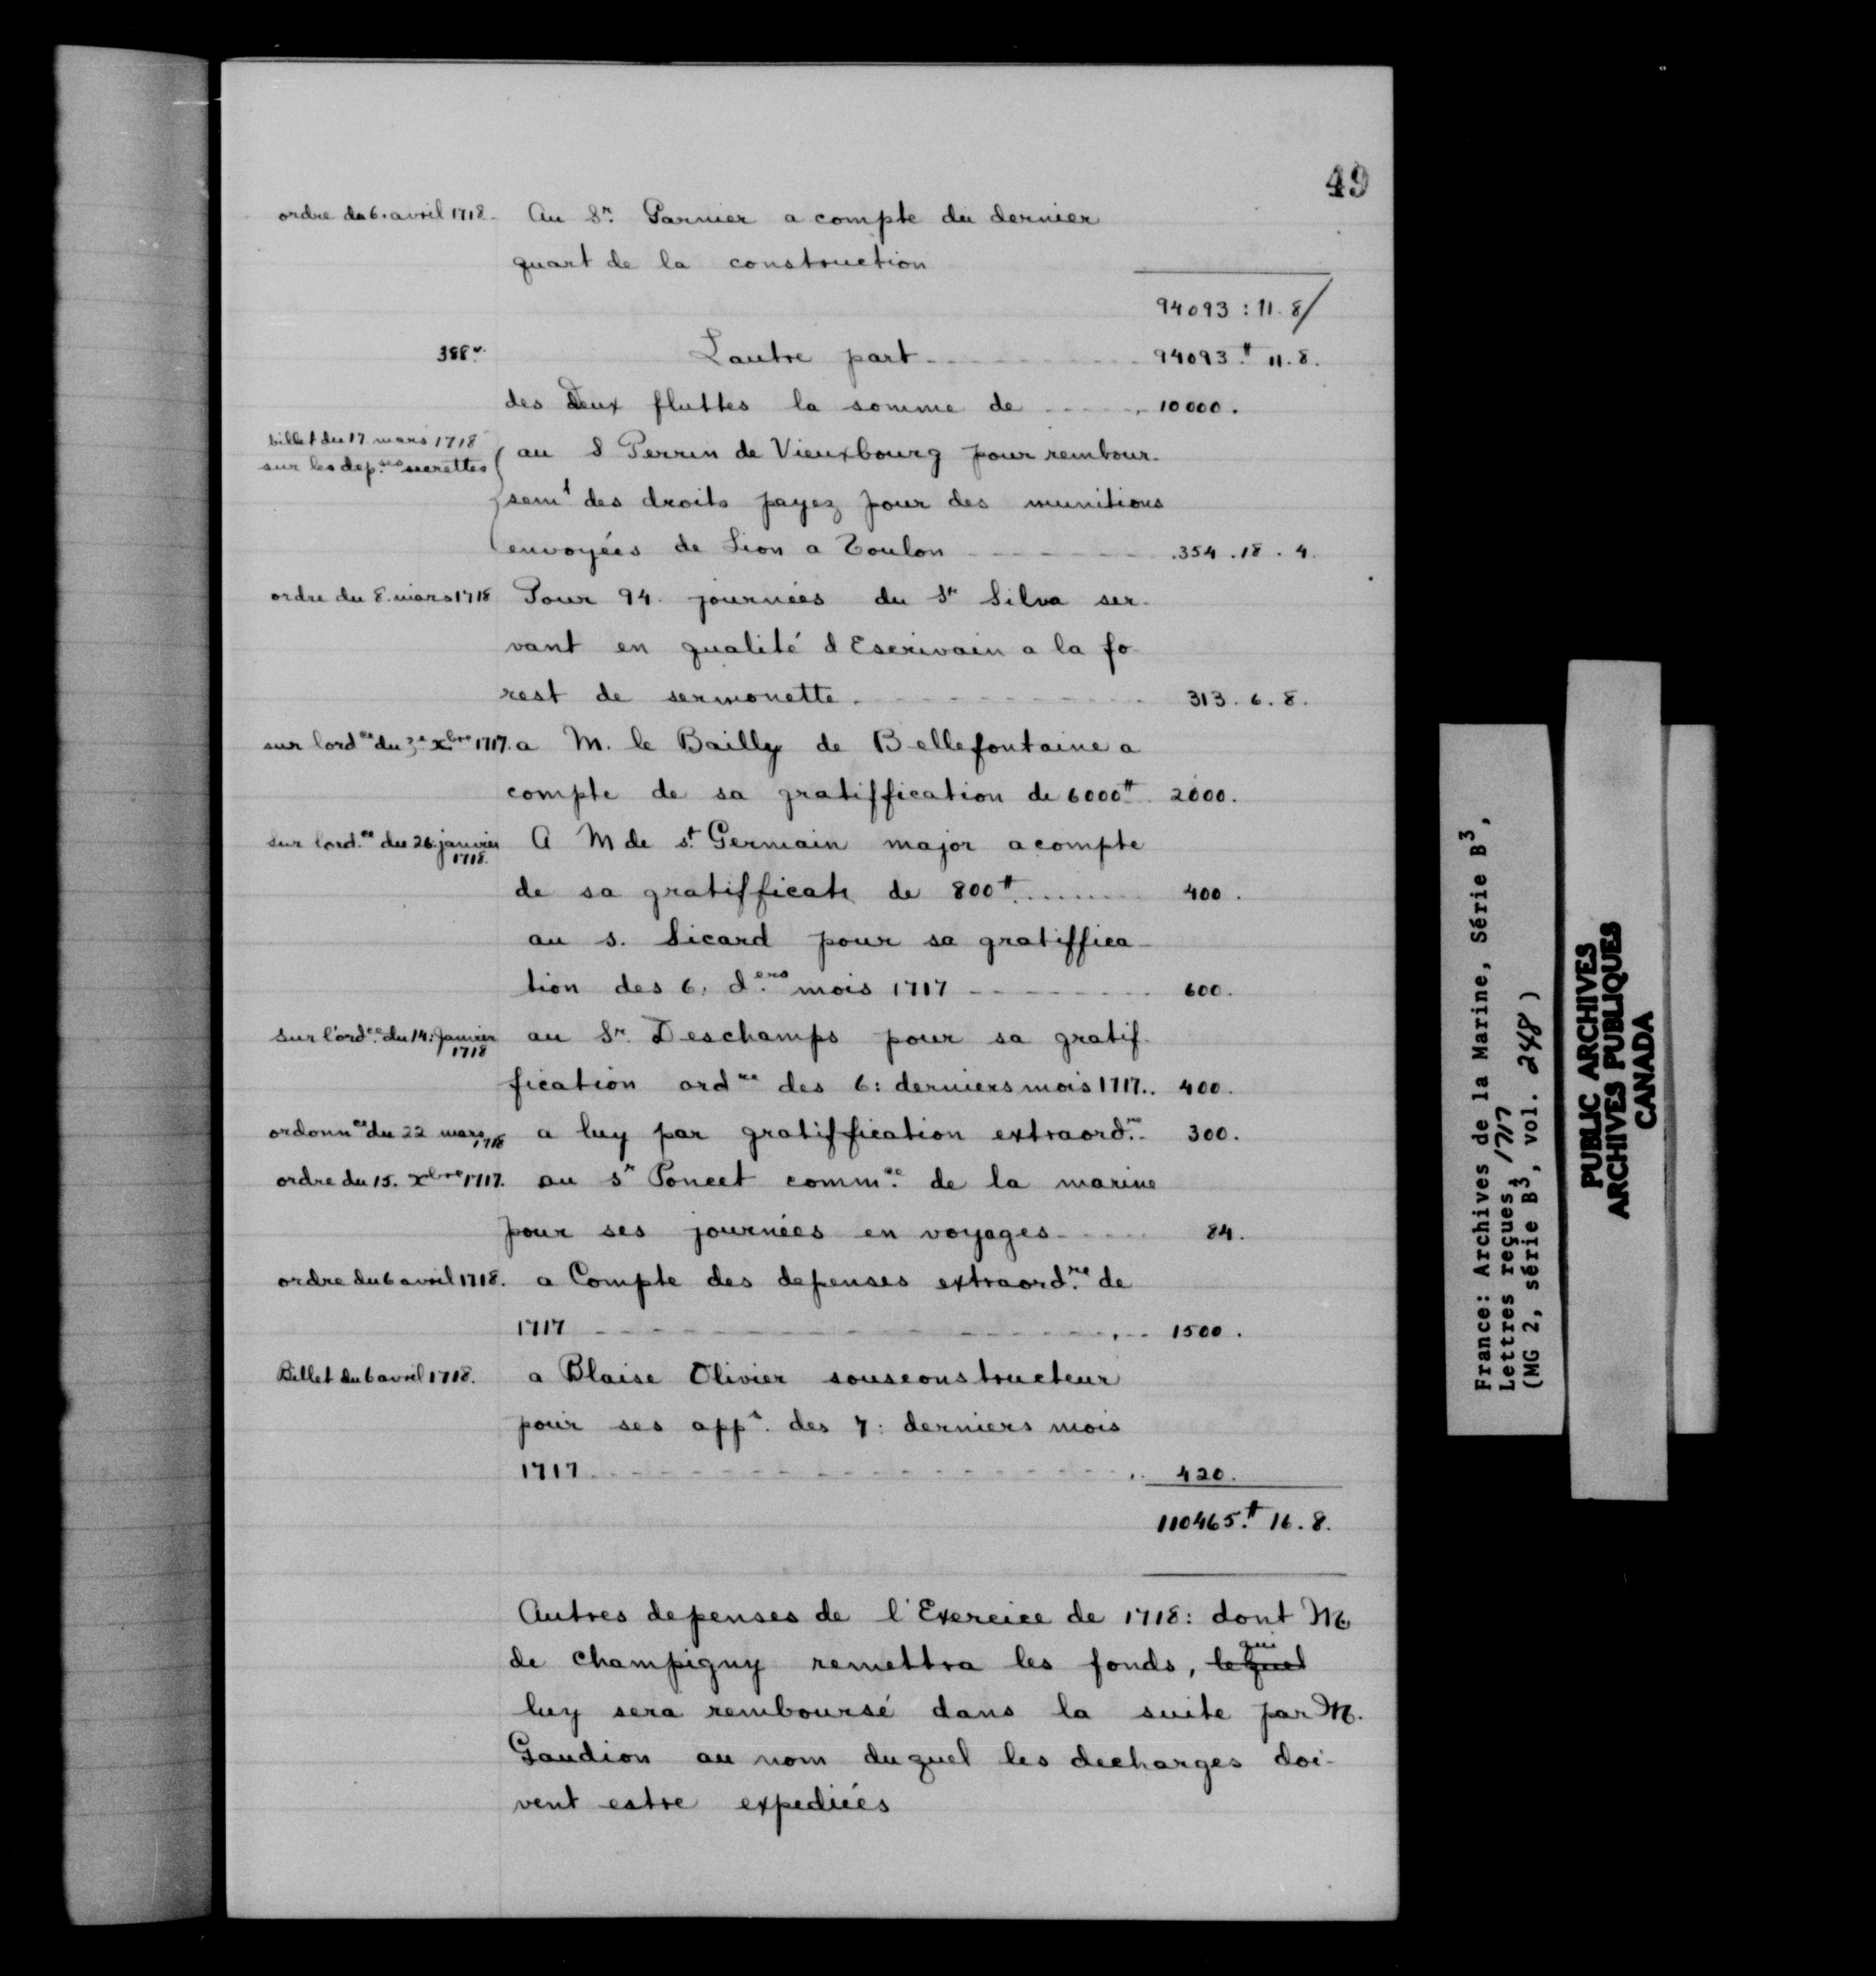 49
ordre du 6. avril 1718. Au Sr. Garnier a compte du dernier
quart de la construction
94093 : 11. 8/
388v. Lautre part 94093.# 11. 8.
des Deux fluttes la somme de 10000.
billet du 17 mars 1718 au S Perrin de Vieuxbourg pour rembour-
sur les dep.ses secrettes
semt des droits payez pour des munitions
envoyées de Lion a Toulon 354. 18. 4.
ordre du 8. mars 1718 Pour 94. journées du Sr Silva ser-
vant en qualité d Escrivain a la fo-
rest de sermonette. 313. 6. 8.
sur lordce du 3e xbre 1717. a M. le Bailly de Bellefontaine a
compte de sa gratiffication de 6000# 2000.
sur lord.ce du 26. janvier 1718. A M de st. Germain major a compte
de sa gratifficatn de 800# 400.
au s. Sicard pour sa gratiffica-
tion des 6. d.ers mois 1717 600.
Sur l'ord.ce du 14: Janvier 1718 au Sr. Deschamps pour sa gratif-
fication ordre des 6: derniers mois 1717.. 400.
ordonnce du 22 mars 1718 a luy par gratiffication extraord.re 300.
ordre du 15. xbre 1717. au sr Poncet comm.re de la marine
pour ses journées en voyages 84.
ordre du 6 avril 1718. a Compte des depenses extraord.re de
1717 1500.
Billet du 6 avril 1718. a Blaise Olivier sousconstructeur
pour ses apps. des 7: derniers mois
1717 420.
110465.# 16. 8.
Autres depenses de l'Exercice de 1718: dont M.
de Champigny remettra les fonds, lequel qui
luy sera remboursé dans la suite par M.
Gaudion au nom duquel les decharges doi-
vent estre expediées
France: Archives de la Marine, Série B3,
Lettres reçues, 1717
(MG 2, série B3, vol. 248)
PUBLIC ARCHIVES
ARCHIVES PUBLIQUES
CANADA